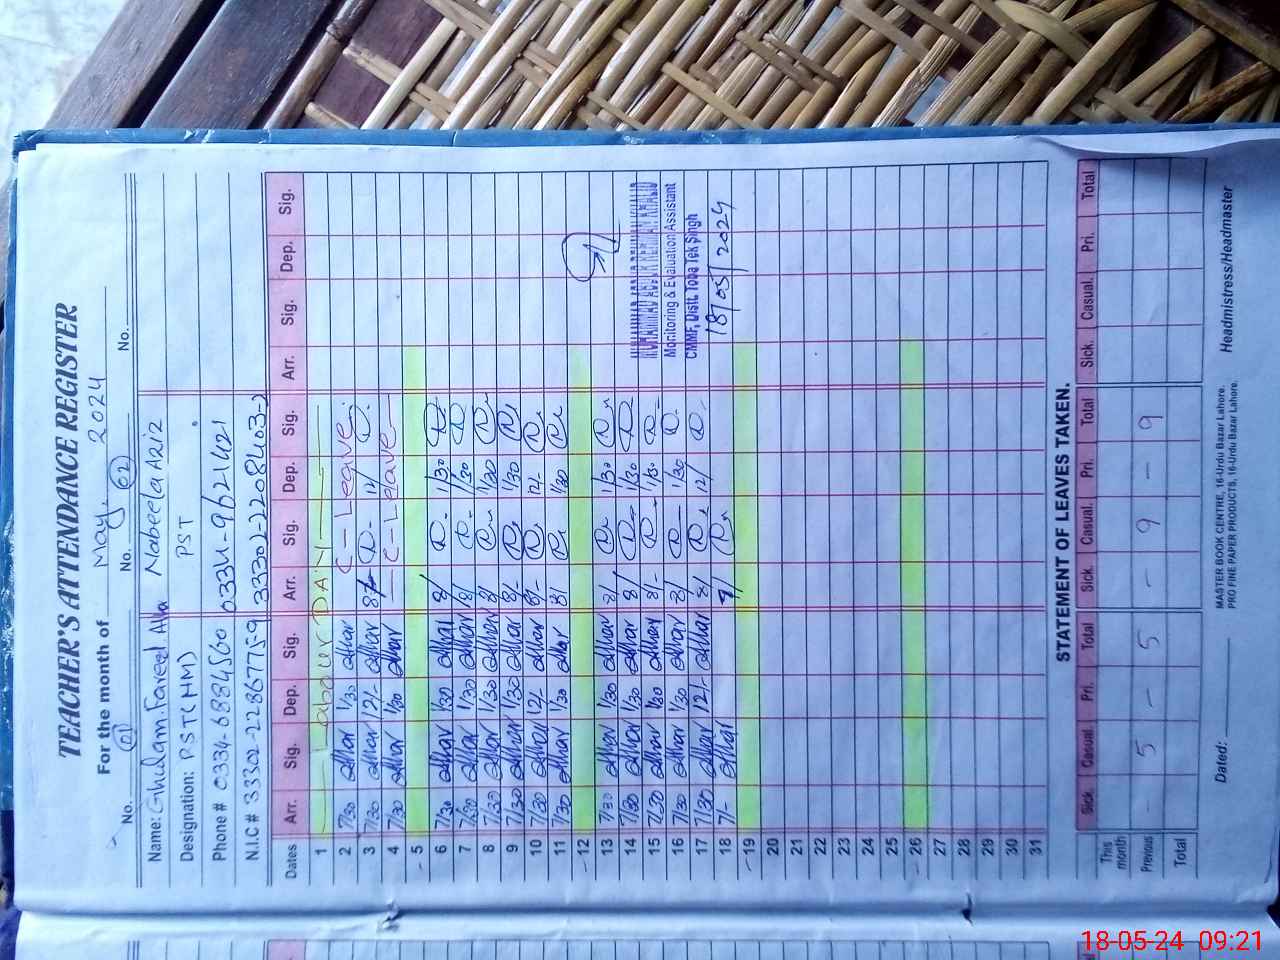 TEACHER'S ATTENDANCE REGISTER
For the month of May, 2024
No. 01 No. 02 No.
Name: Ghulam Fareed Nabeela Aziz
Designation: PST (HM) PST
Phone # 0334-6884560 0334-9621421
N.I.C # 33302-2286775-9 33302-2208403-2
Dates Arr. Sig. Dep. Sig. Arr. Sig. Dep. Sig. Arr. Sig. Dep. Sig.
1 Labour DAY
2 7/30 1/30 C - Leave
3 7/30 12/- 8/ 12/
4 7/30 1/30 C - Leave
5
6 7/30 1/30 8/ 1/30
7 7/30 1/30 8/ 1/30
8 7/30 1/30 8/ 1/30
9 7/30 1/30 8/- 1/30
10 7/30 12/- 8/- 12/-
11 7/30 1/30 8/ 1/30
12
13 7/30 1/30 8/ 1/30
14 7/30 1/30 8/ 1/30
15 7/30 1/30 8/- 1/30
16 7/30 1/30 8/ 1/30
17 7/30 12/- 8/ 12/
18 7/-
19
20
21
22
23
24
25
26
27
28
29
30
31
MUHAMMAD ABDUR REHMAN KHALID
Monitoring & Evaluation Assistant
CMMF, Distt. Toba Tek Singh
18/05/2024
STATEMENT OF LEAVES TAKEN.
Sick. Casual. Pri. Total Sick. Casual. Pri. Total Sick. Casual. Pri. Total
This month
Previous - 5 - 5 - 9 - 9
Total
Dated: MASTER BOOK CENTRE, 16-Urdu Bazar Lahore. Headmistress/Headmaster
PRO FINE PAPER PRODUCTS, 16-Urdu Bazar Lahore.
18-05-24 09:21